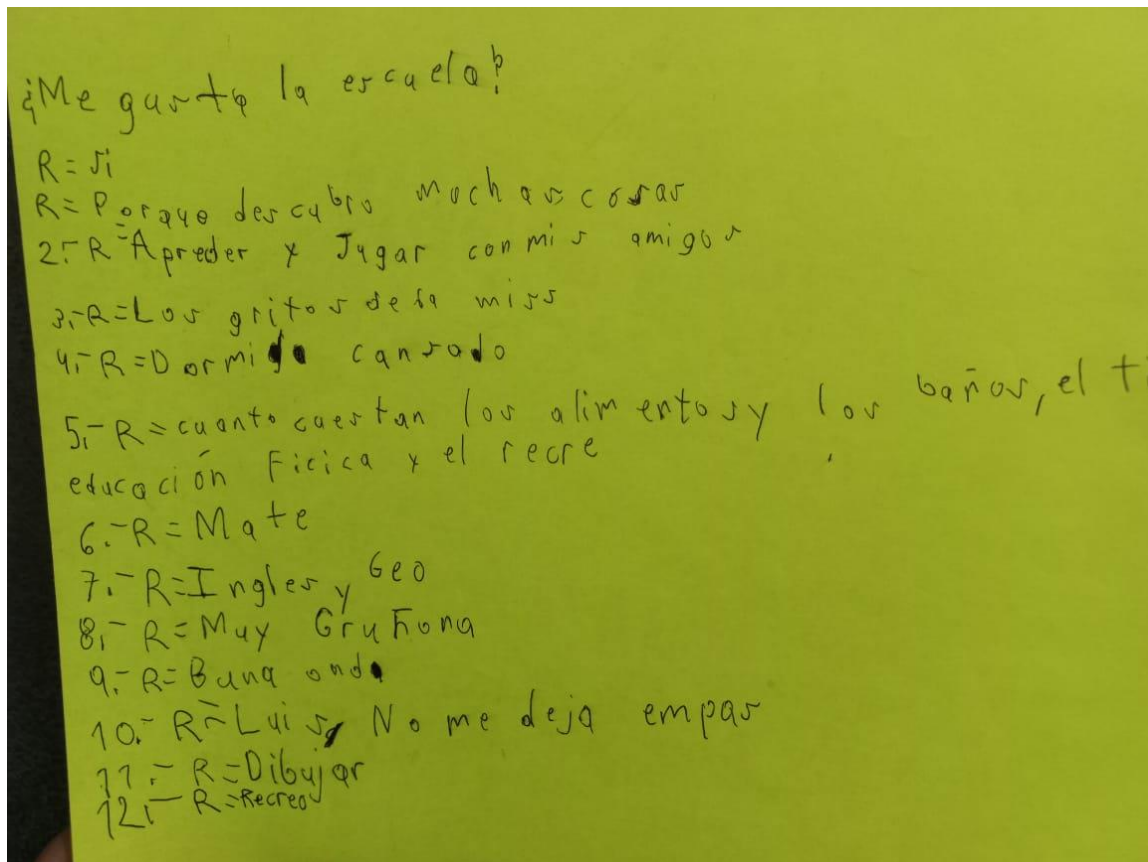 ¿Me gusta la escuela?
R= si
R= Porque descubro muchas cosas
2.-R=Apreder y Jugar con mis amigos
3.-R=Los gritos de la miss
4.-R=Dormido cansado
5.-R=cuanto cuestan los alimentos y los baños, el ti
educación Ficica y el recre
6.-R=Mate
7.-R=Ingles y Geo
8.-R=Muy Gruñona
9.-R=Buna onda
10.-R=Luis, No me deja empas
11.-R=Dibujar
12.-R=Recreo